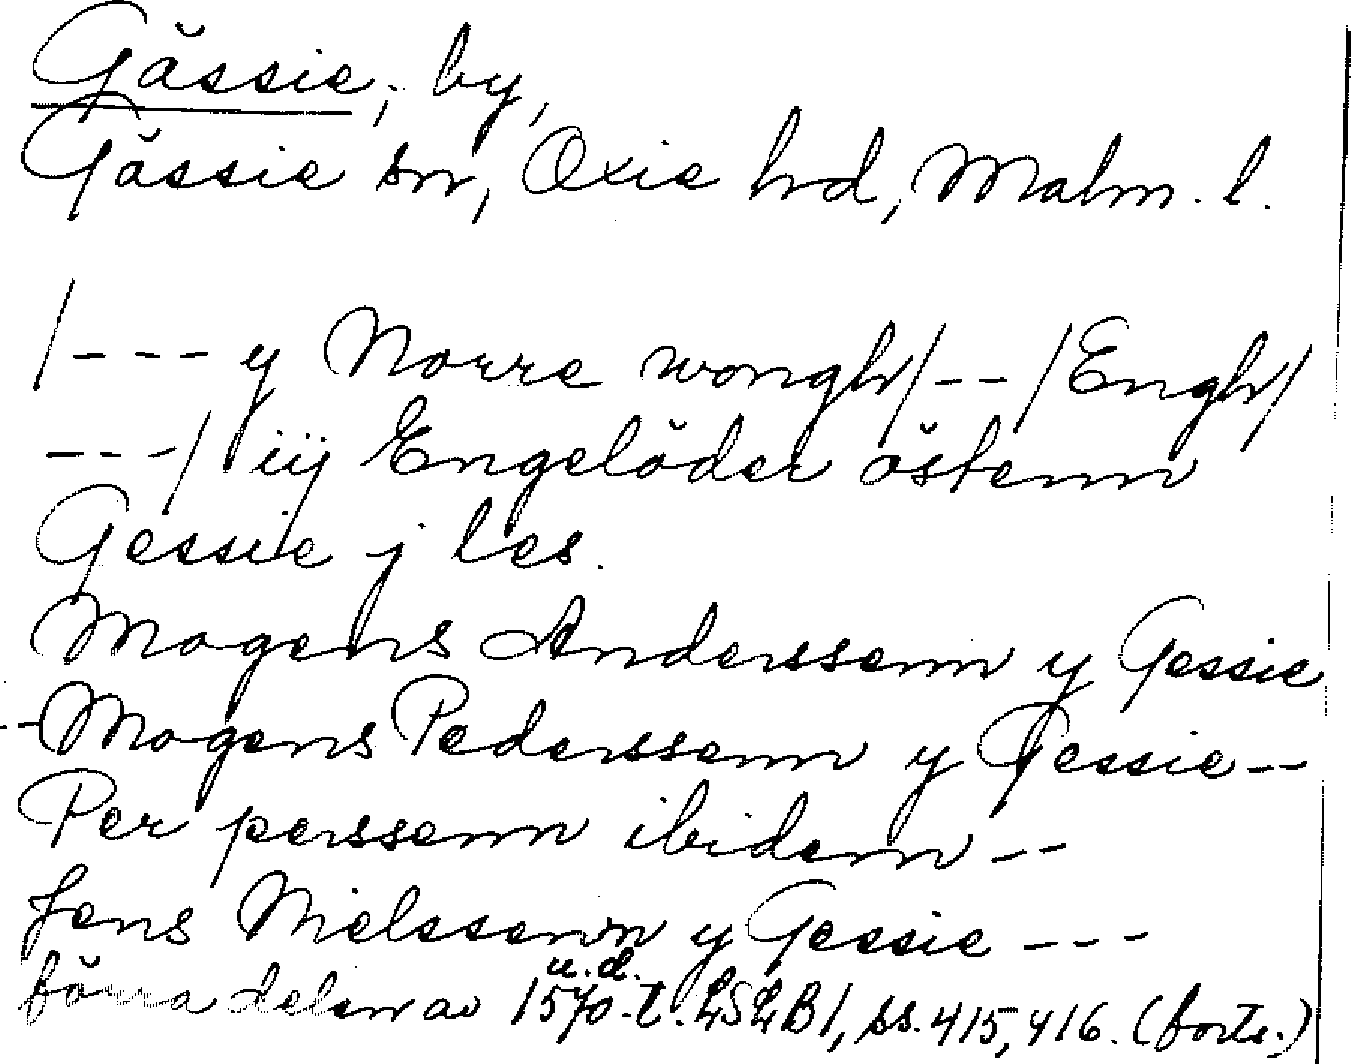 Gässie, by,
Gässie sn, Oxie hd, Malm. l.
/--- y Norre wongh/--/Engh/
---/ iij Engelöder östenn
Gessie j les.
Mogens Anderssenn y Gessie
--Mogens Pederssenn y Gessie--
Per perssenn ibidem--
Jens Nielssenn y Gessie ---
u.d.
förra delen av 1570-t. LSLB1, ss. 415, 416. (forts.)